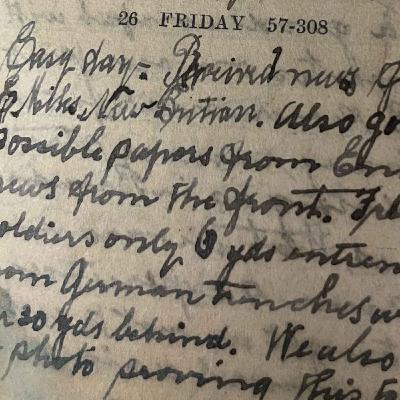 26 FRIDAY 57-308
Easy day - Received news
Also go
ossible papers from Em
ews from the front.
oldiers only 6 yds entren
om German trenches
20 yds behind. We also
photo proving this to